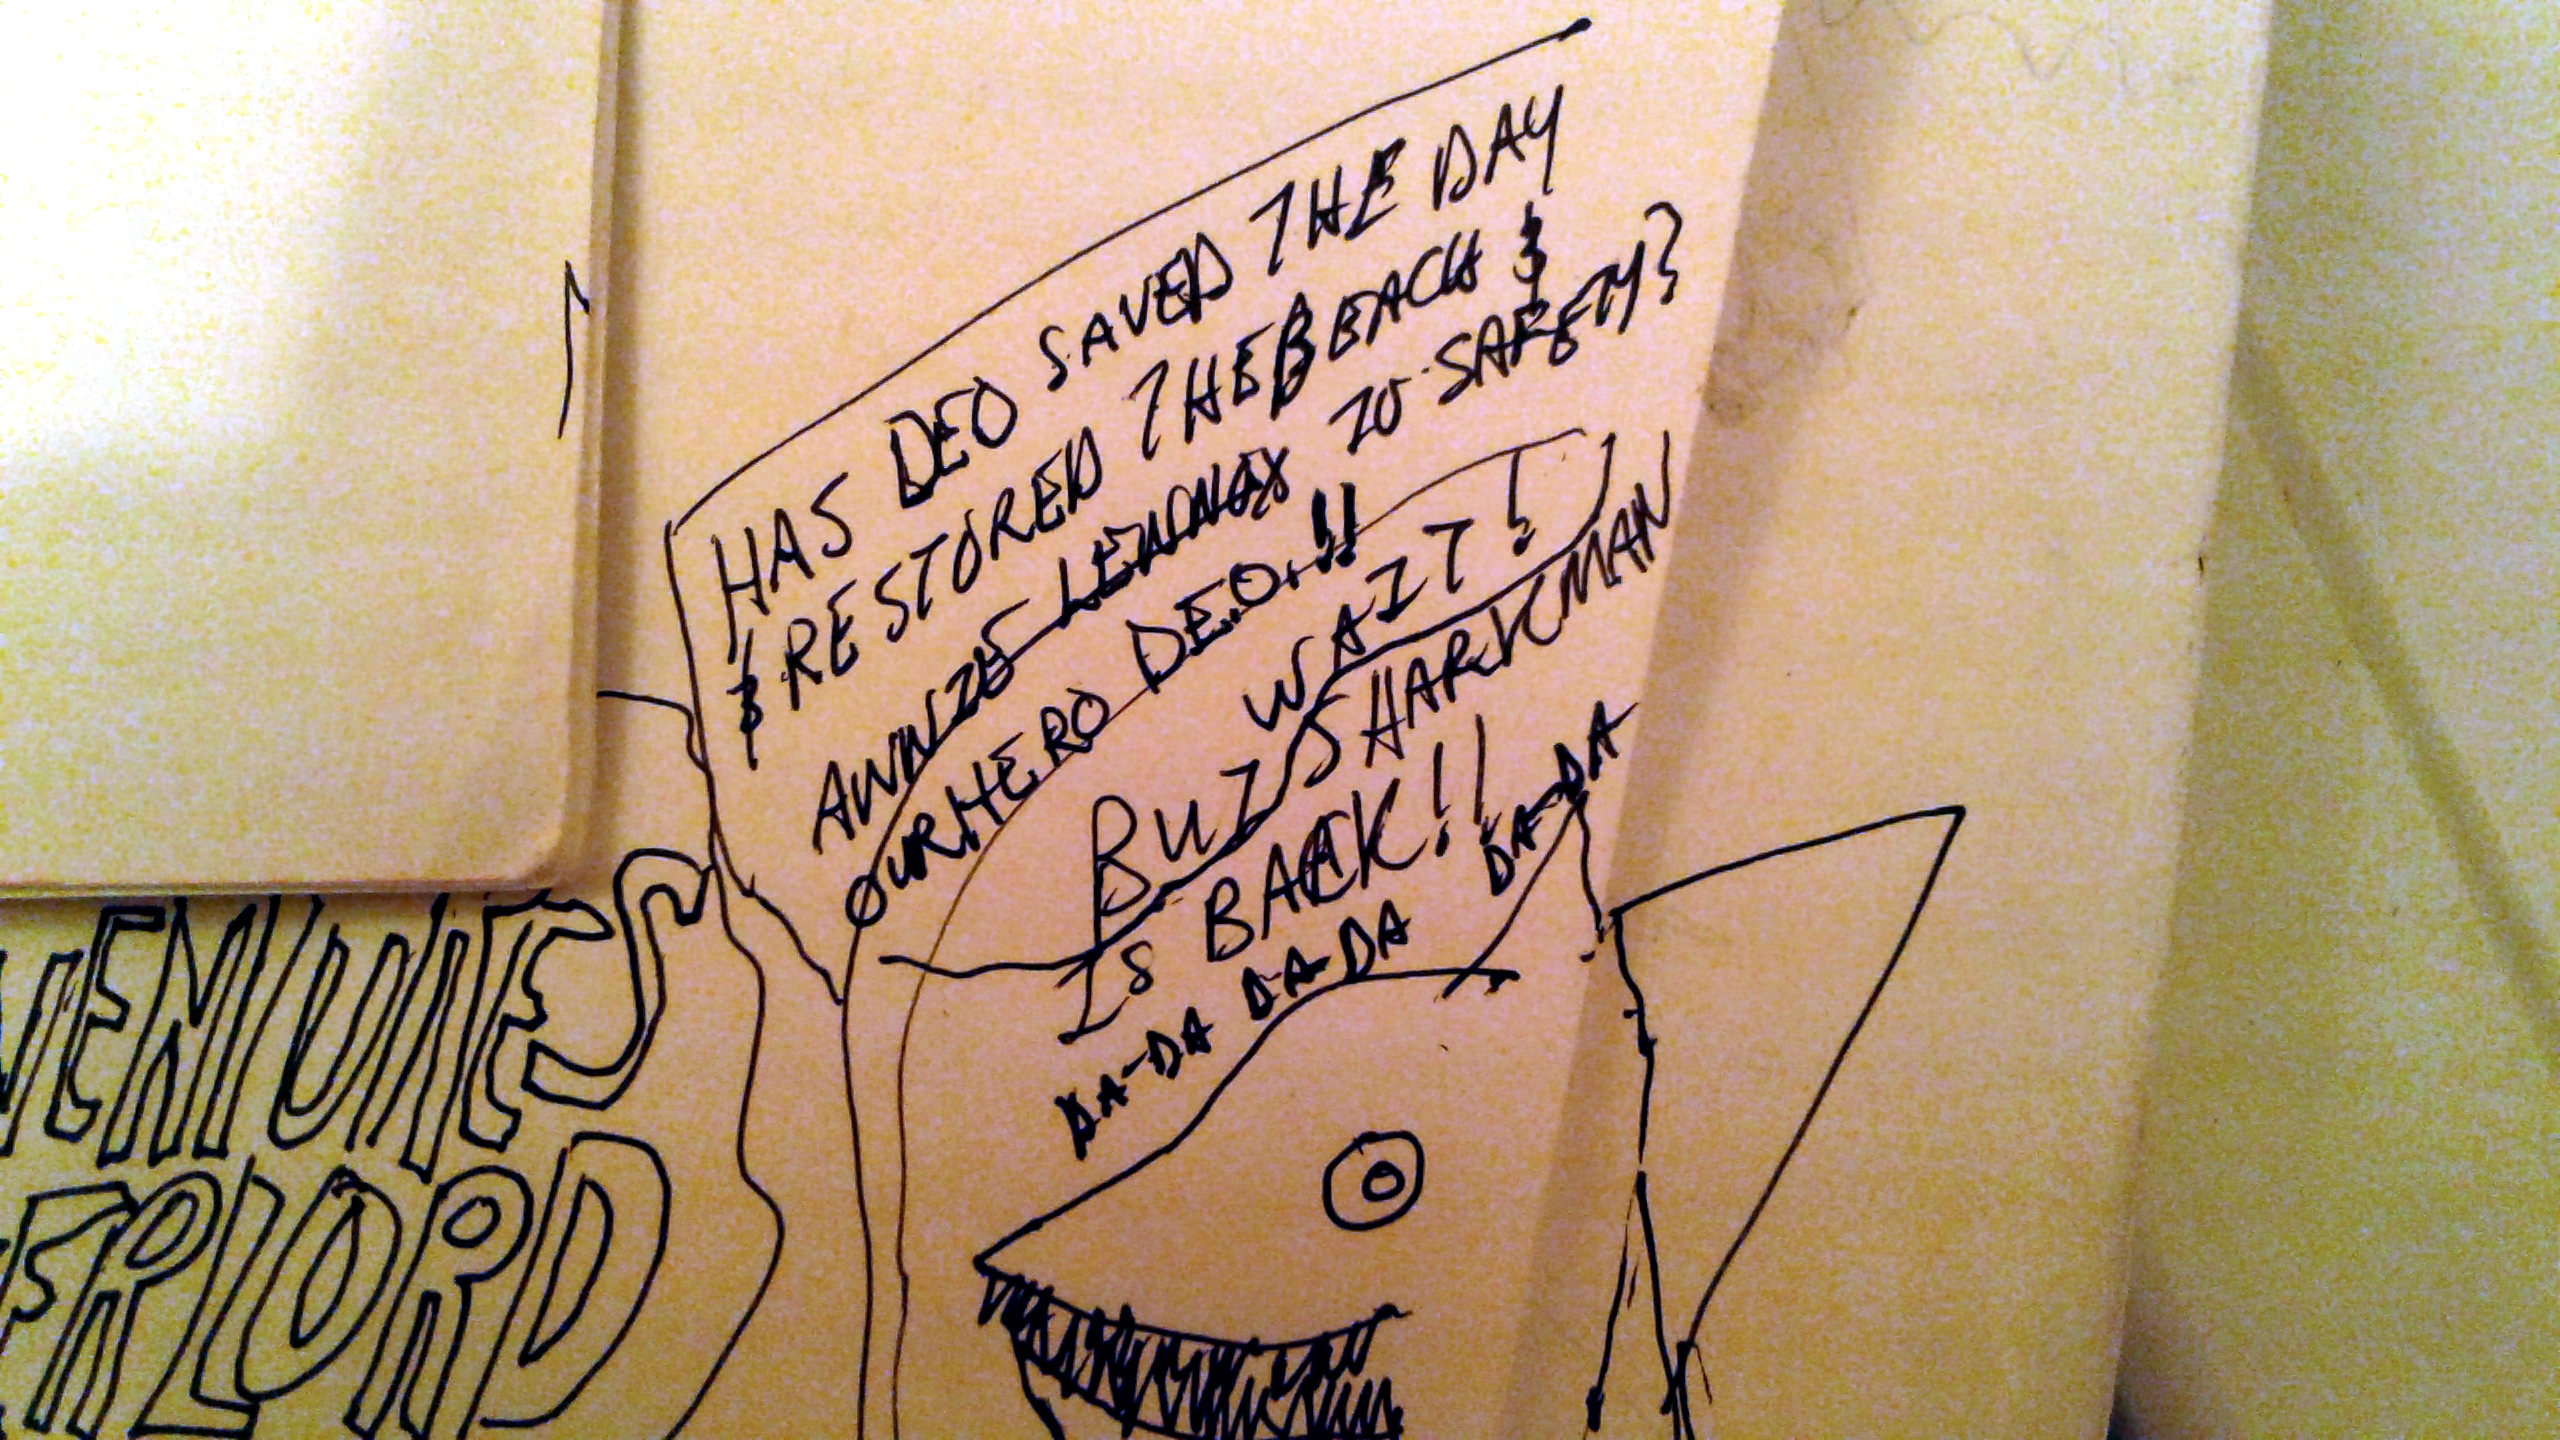 HAS DEO SAVED THE DAY
& RESTORED THE BEACH &
ANNIE LENNOX TO SAFETY?
OUR HERO DEO!!
BUT WAIT!
SHARKMAN
IS BACK!!
DA-DA DA-DA DA-DA